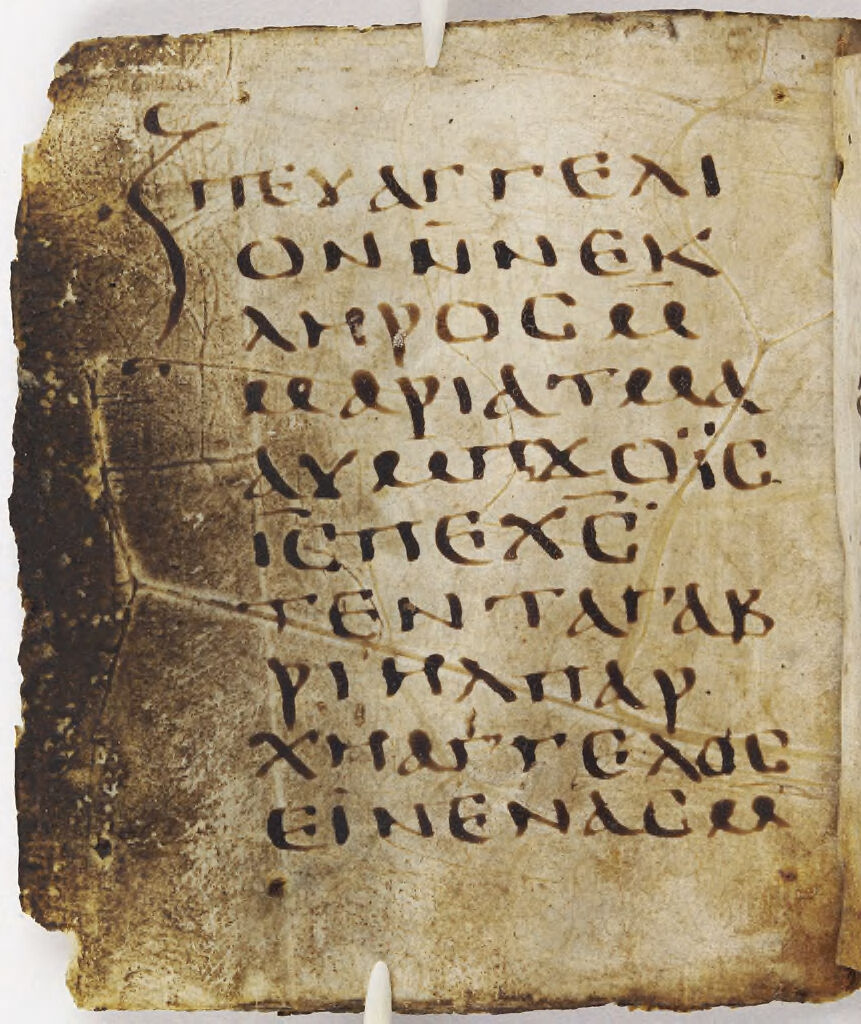 ⲡⲉⲩⲁⲅⲅⲉⲗⲓ
ⲟⲛⲛ̄ⲛⲉⲕ
ⲗⲏⲣⲟⲥⲙ̄
ⲙⲁⲣⲓⲁⲧⲙⲁ
ⲁⲩⲙ̄ⲡϫⲟⲓ̈ⲥ
ⲓ̄ⲥ̄ⲡⲉⲭ̄ⲥ̄
ⲧⲉⲛⲧⲁⲅⲁⲃ
ⲣⲓⲏⲗⲡⲁⲣ
ⲭⲏⲁⲅⲅⲉⲗⲟⲥ
ⲉⲓⲛⲉⲛⲁⲥⲙ